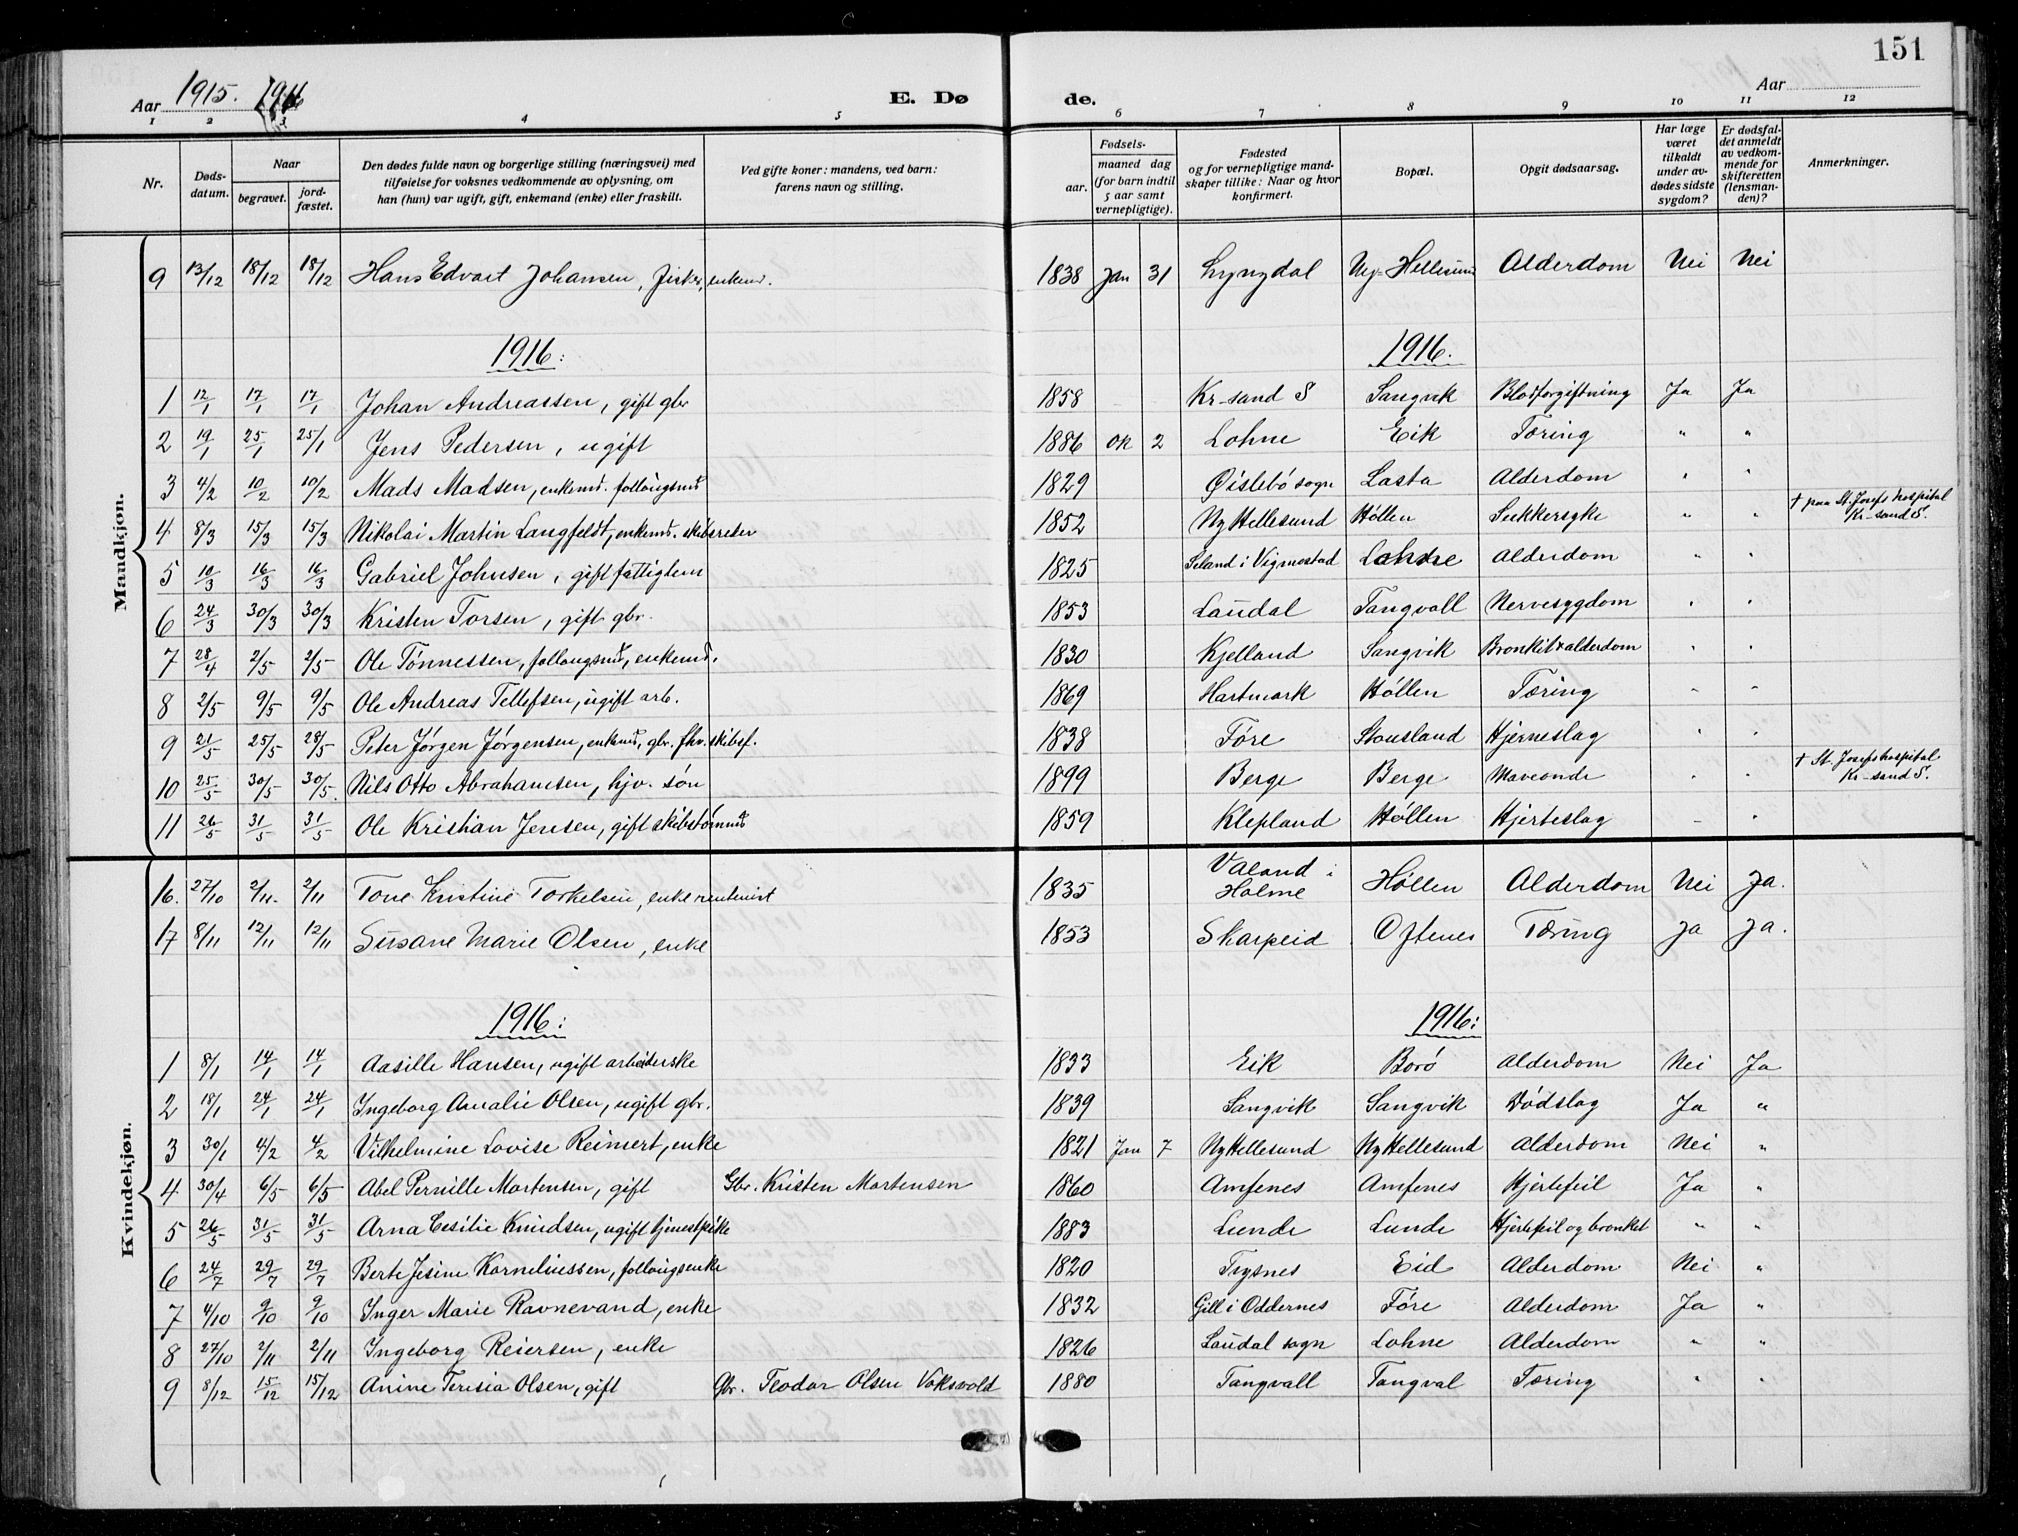 151
Aar 1915. 1916
E. Dø de.
Aar
1 2 3 4 5 6 7 8 9 10 11 12
Nr.
Døds-
datum.
Naar
begravet.
jord-
fæstet.
Den dødes fulde navn og borgerlige stilling (næringsvei) med
tilføielse for voksnes vedkommende av oplysning, om
han (hun) var ugift, gift, enkemand (enke) eller fraskilt.
Ved gifte koner: mandens, ved barn:
farens navn og stilling.
Fødsels-
aar.
maaned dag
(for barn indtil
5 aar samt
vernepligtige).
Fødested
og for vernepligtige mand-
skaper tillike: Naar og hvor
konfirmert.
Bopæl.
Opgit dødsaarsag.
Har læge
været
tilkaldt
under av-
dødes sidste
sygdom?
Er dødsfal-
det anmeldt
av vedkom-
mende for
skifteretten
(lensman-
den)?
Anmerkninger.
Mandkjøn.
9 13/12 18/12 18/12 Hans Edvart Johansen, fisker, enkem. 1838 Jan 31 Lyngdal Ny-Hellesund Alderdom Nei Nei
1916: 1916.
1 12/1 17/1 17/1 Johan Andreassen, gift gbr 1858 Kr-sand S Sangvik Blodforgiftning Ja Ja
2 19/1 25/1 25/1 Jens Pedersen, ugift 1886 Ok 2 Lohne Eik Tæring " "
3 4/2 10/2 10/2 Mads Madsen, enkem. follaugsmd 1829 Øislebø sogn Lasta Alderdom " "
4 8/3 15/3 15/3 Nikolai Martin Langfeldt, enkemd. skibsreder 1852 Ny Hellesund Høllen Sukkersyke " " † paa St. Josefs hospital
Kr-sand S.
5 10/3 16/3 16/3 Gabriel Johnsen, gift fattiglem 1825 Seland i Vigmostad Lohne Alderdom " "
6 24/3 30/3 30/3 Kristen Torsen, gift gbr. 1853 Laudal Tangvall Nervesygdom " "
7 28/4 2/5 2/5 Ole Tønnessen, follaugsmd, enkemd. 1830 Kjelland Sangvik Bronkit & alderdom " "
8 2/5 9/5 9/5 Ole Andreas Tellefsen, ugift arb. 1869 Hartmark Høllen Tæring " "
9 21/5 25/5 28/5 Peter Jørgen Jørgensen, enkemd, gbr. fhv. skibsf. 1838 Føre Stousland Hjerneslag " "
10 25/5 30/5 30/5. Nils Otto Abrahamsen, hjv. søn 1899 Berge Berge Maveonde " " † St. Josefs hospital
Kr-sand S.
11 26/5 31/5 31/5 Ole Kristian Jensen, gift skibstømmd 1859 Klepland Høllen Hjerteslag " "
Kvindekjøn.
16. 27/10 2/11. 2/11 Tone Kristine Torkelsen, enke rentenist 1835 Valand i
Holme Høllen Alderdom Nei Ja.
17 8/11 12/11 12/11 Susane Marie Olsen, enke 1853 Skarpeid Oftenes Tæring Ja Ja.
1916: 1916:
1 8/1 14/1 14/1 Aasille Hansen, ugift arbeiderske 1833 Eik Borø Alderdom Nei Ja
2 18/1 24/1 24/1 Ingeborg Amalie Olsen, ugift gbr. 1839 Sangvik Sangvik Dødslag Ja "
3 30/1 4/2 4/2 Vilhelmine Lovise Reinert, enke 1821 Jan 7 Ny Hellesund Ny Hellesund Alderdom Nei "
4 30/4 6/5 6/5 Abel Pernille Mortensen, gift Gbr. Kristen Mortensen 1860 Amfenes Amfenes Hjertefeil Ja "
5 26/5 31/5 31/5 Arna Cesilie Knudsen, ugift tjenestpike 1883 Lunde Lunde Hjertefeil og bronket " "
6 24/7 29/7 29/7 Berte Jesine Korneliussen, follaugsenke 1820 Trysnes Eid Alderdom Nei "
7 4/10 9/10 9/10 Inger Marie Ravnevand, enke 1832 Gill i Oddernes Føre Alderdom Ja "
8 27/10 2/11 2/11 Ingeborg Reiersen, enke 1826 Laudal sogn Lohne Alderdom " "
9 8/12 15/12 15/12 Anine Teresia Olsen, gift Gbr. Teodor Olsen Voksvold 1880 Tangvall Tangval Tæring " "